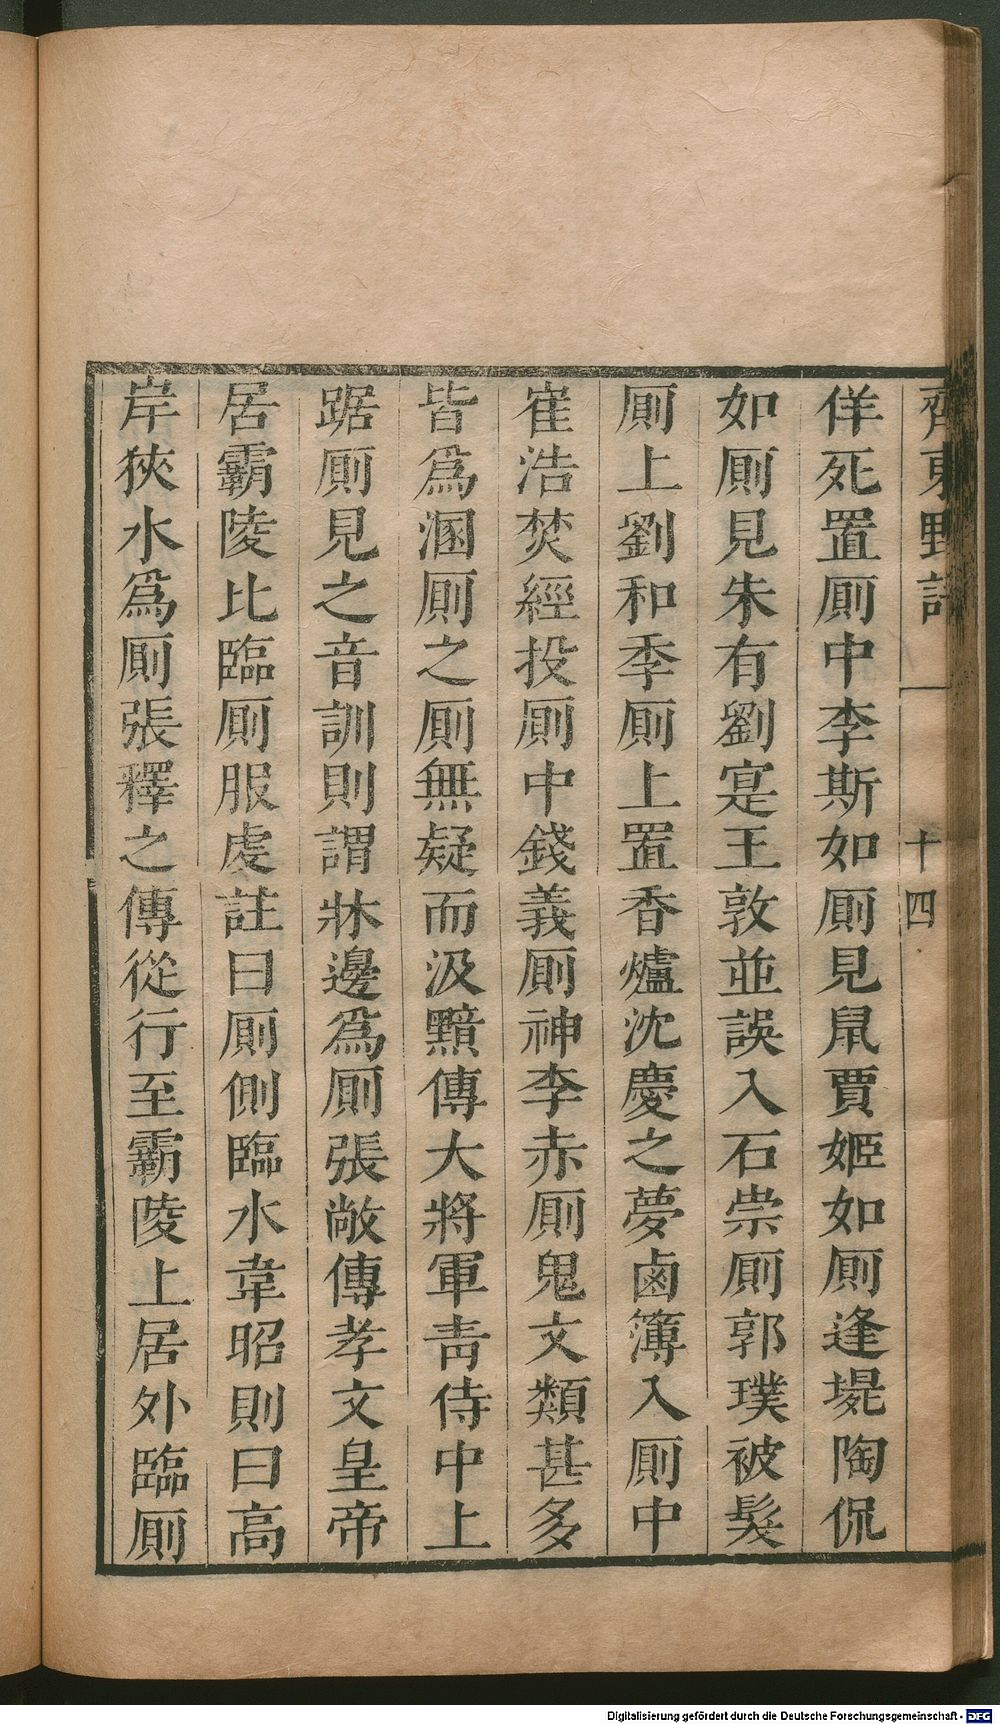 齊東野語 一 十四
佯死置厠中李斯如厠見鼠賈姬如厠逢㙺陶侃
如厠見朱有劉寔王敦並誤入石崇厠郭璞被髮
厠上劉和季厠上置香爐沈慶之夢鹵簿入厠中
崔浩焚經投厠中錢義厠神李赤厠鬼文類甚多
皆爲溷厠之厠無疑而汲黯傳大將軍青侍中上
踞厠見之音訓則謂牀邊爲厠張敞傳孝文皇帝
居霸陵比臨厠服虔註曰厠側臨水韋昭則曰高
岸狹水爲厠張釋之傳從行至霸陵上居外臨厠
Digitalisierung gefördert durch die Deutsche Forschungsgemeinschaft - DFG